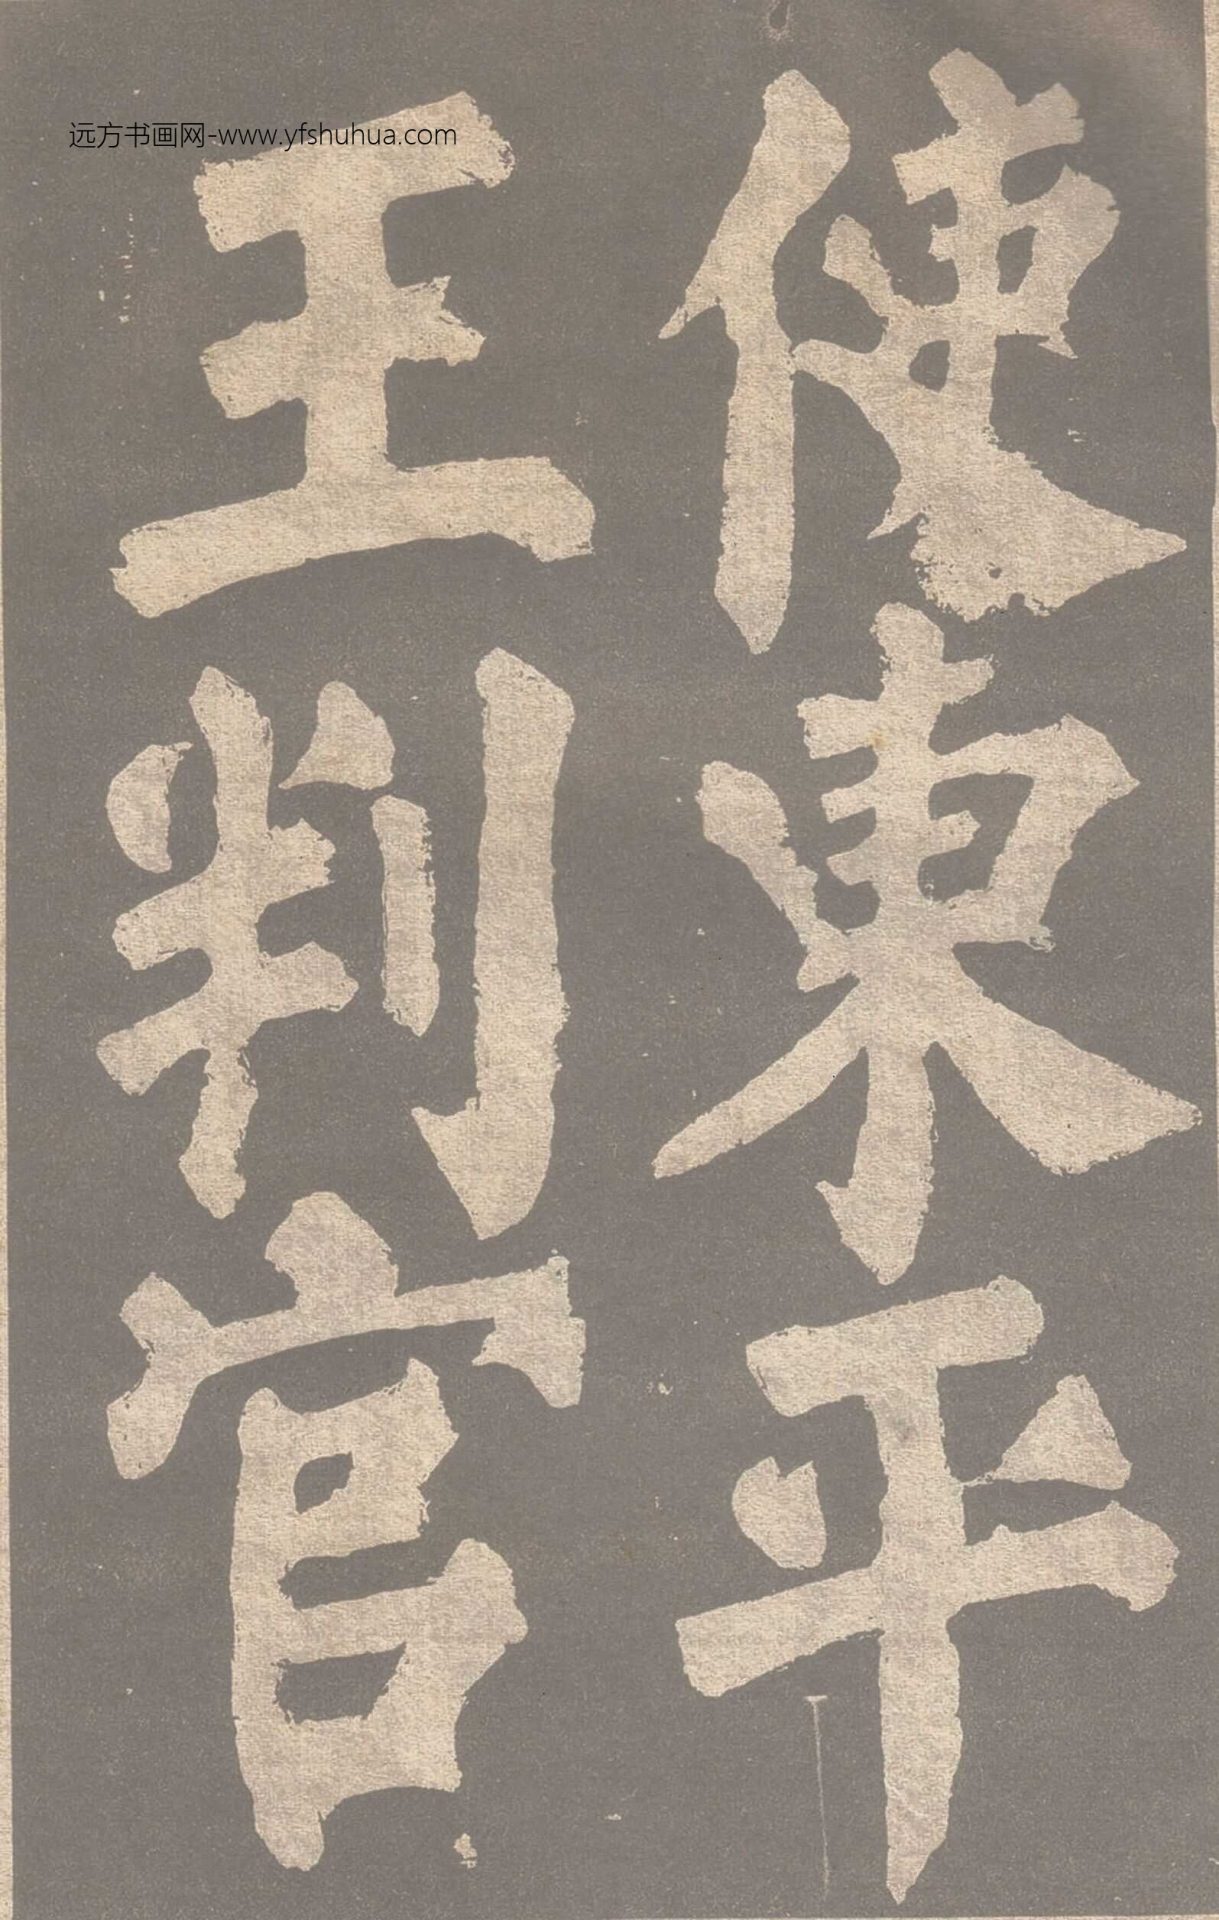 使東平
王判官
远方书画网-www.yfshuhua.com